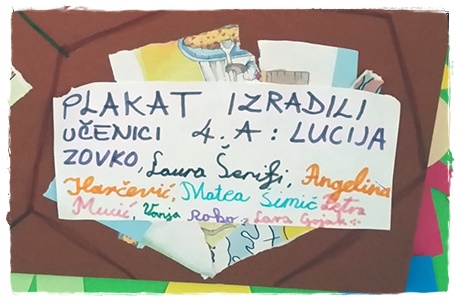 PLAKAT IZRADILI
UČENICI 4.A: LUCIJA
ZOVKO, Laura Šerifi, Angelina
Harčević, Matea Šimić, Petra
Mucić, Vanja Roko, Lara Gojak